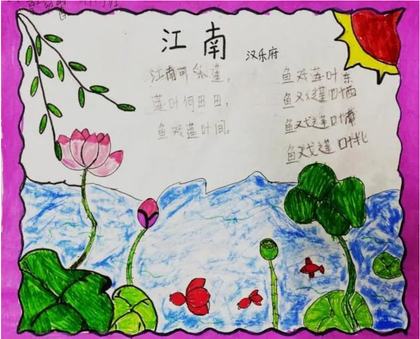 江南
汉乐府
江南可采莲，
莲叶何田田，
鱼戏莲叶间，
鱼戏莲叶东
鱼戏莲叶西
鱼戏莲叶南
鱼戏莲叶北